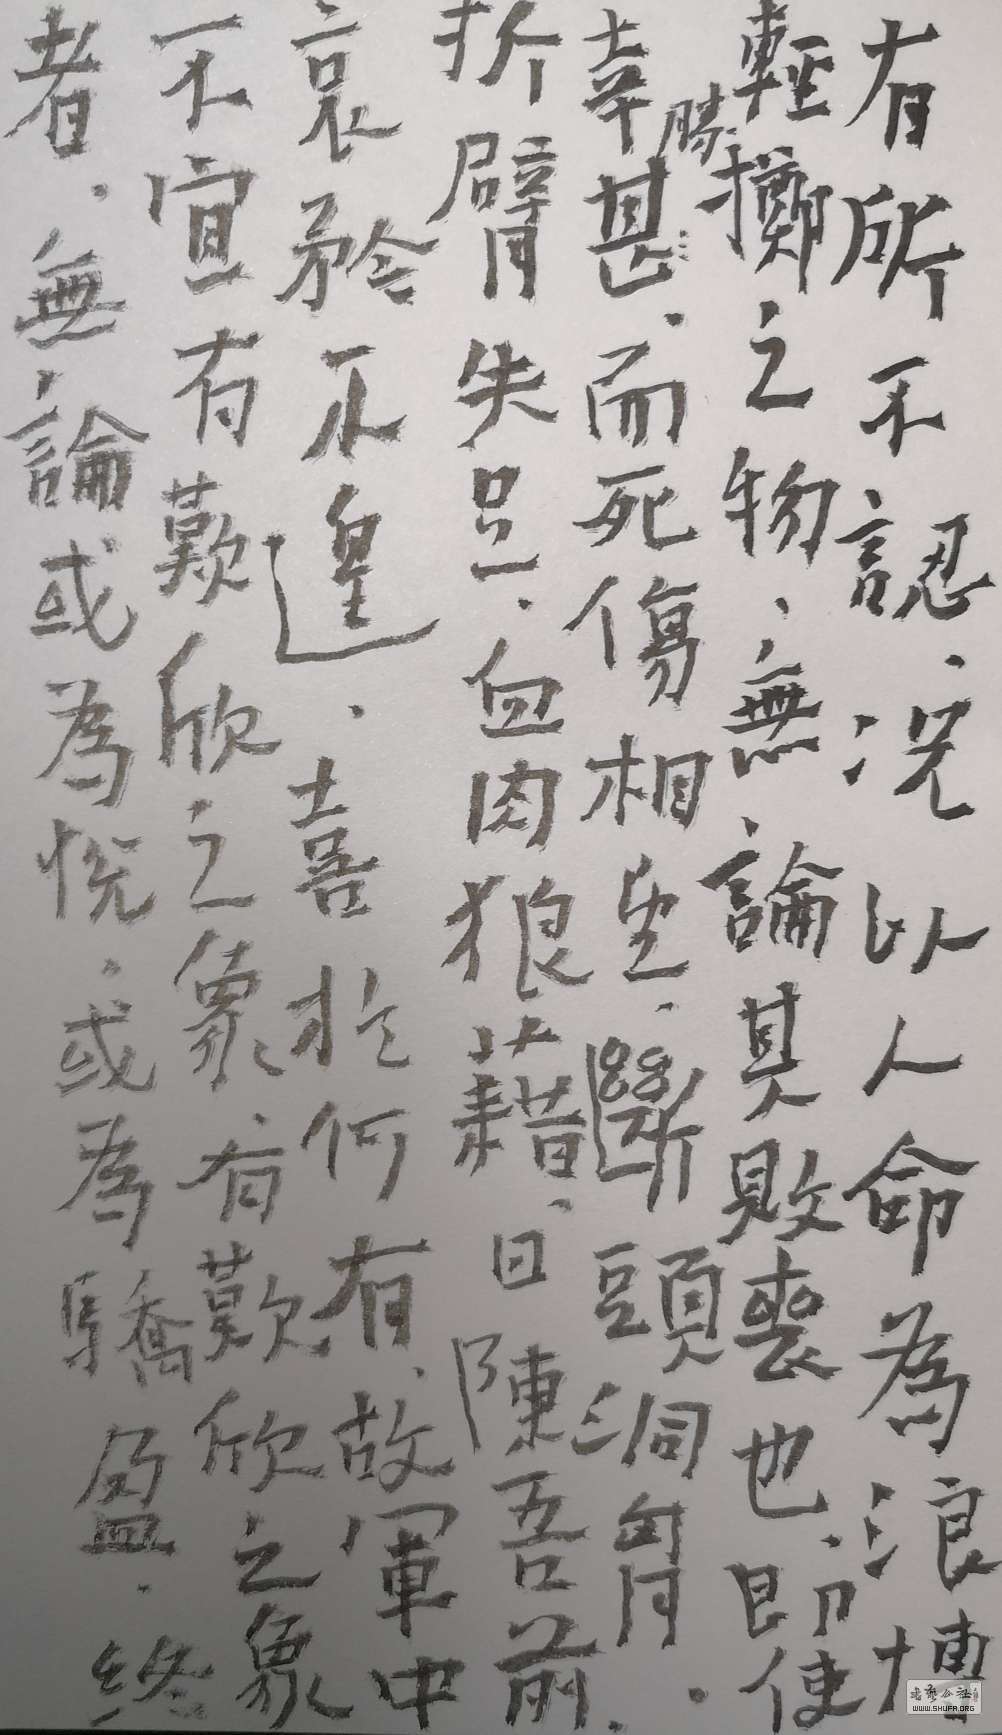 有所不認、況以人命為浪搏
輕擲之物、無論其敗喪也、即使
幸甚、而死傷相望、斷頭洞胷、
勝
折臂失足、血肉狼藉、日陳吾前、
哀矜不遑、喜於何有、故軍中
不宜有歎欣之象、有歎欣之象
者、無論或為悅、或為驕盈、終
书艺公社
WWW.SHUFA.ORG